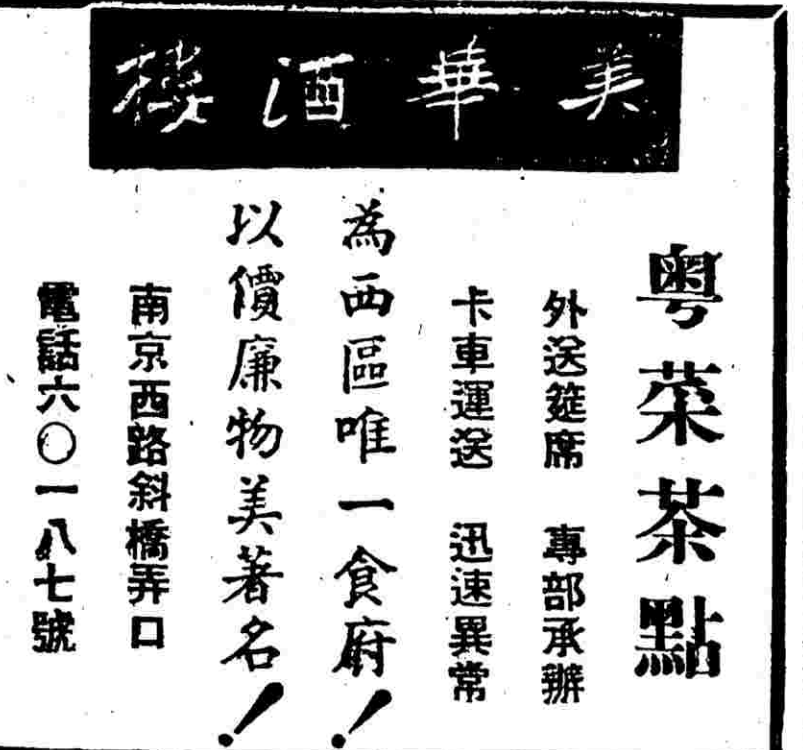 美華酒樓
粵菜茶點
外送筵席 專部承辦
卡車運送 迅速異常
為西區唯一食府！
以價廉物美著名！
南京西路斜橋弄口
電話六〇一八七號